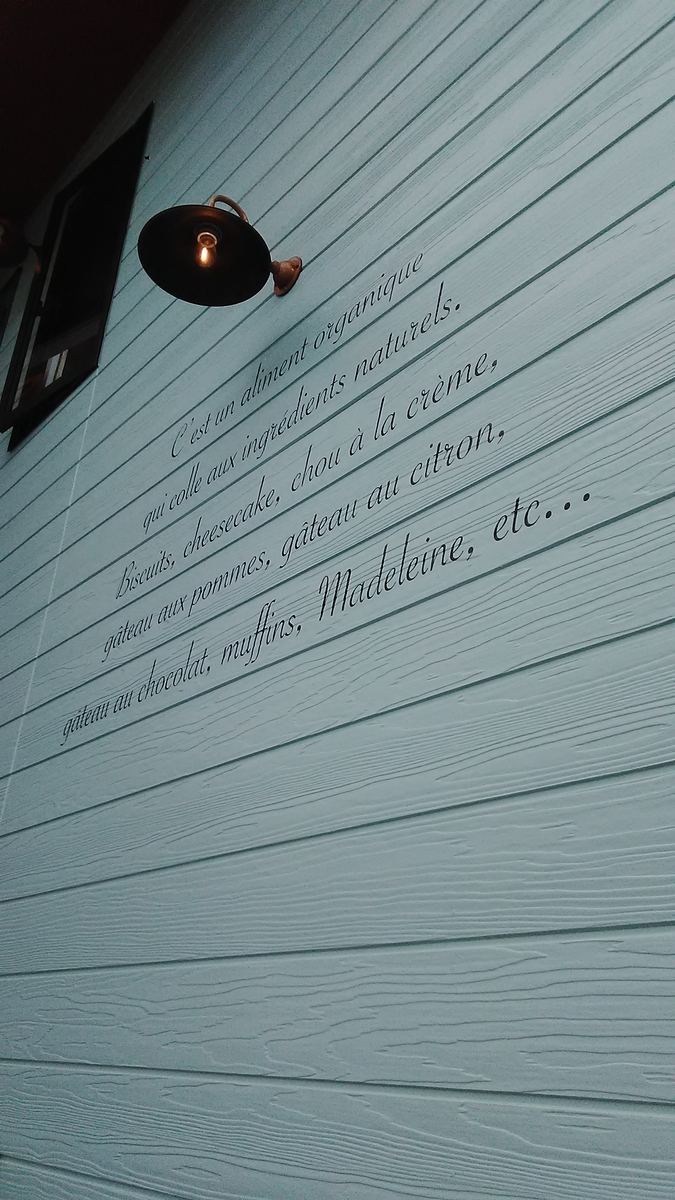 C'est un aliment organique
qui colle aux ingrédients naturels.
Biscuits, cheesecake, chou à la crème,
gâteau aux pommes, gâteau au citron,
gâteau au chocolat, muffins, Madeleine, etc...